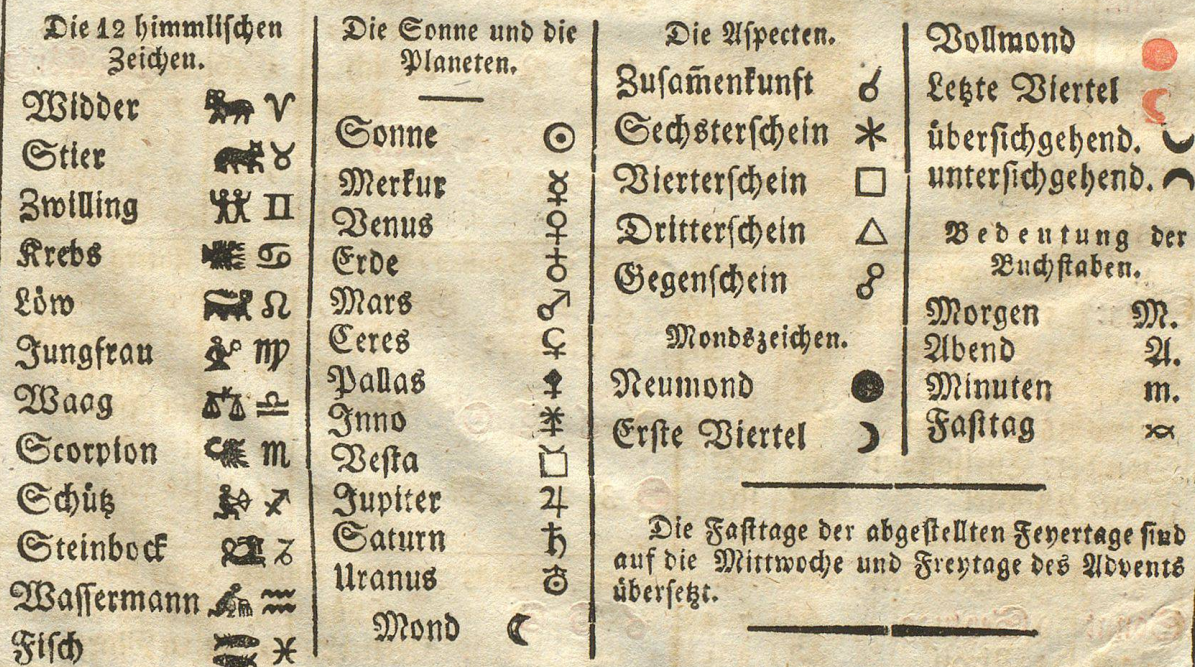 Die 12 himmlischen
Zeichen.
Widder ♈
Stier ♉
Zwilling ♊
Krebs ♋
Löw ♌
Jungfrau ♍
Waag ♎
Scorpion ♏
Schütz ♐
Steinbock ♑
Wassermann ♒
Fisch ♓
Die Sonne und die
Planeten.
Sonne ☉
Merkur ☿
Venus ♀
Erde ♁
Mars ♂
Ceres ⚳
Pallas ⚴
Inno ⚵
Vesta ⚶
Jupiter ♃
Saturn ♄
Uranus ⛢
Mond ☾
Die Aspecten.
Zusam̃enkunft ☌
Sechsterschein ⚹
Vierterschein □
Dritterschein △
Gegenschein ☍
Mondszeichen.
Neumond ●
Erste Viertel ☽
Vollmond ●
Letzte Viertel ☾
übersichgehend.
untersichgehend.
Bedeutung der
Buchstaben.
Morgen M.
Abend A.
Minuten m.
Fasttag
Die Fasttage der abgestellten Feyertage sind
auf die Mittwoche und Freytage des Advents
übersetzt.